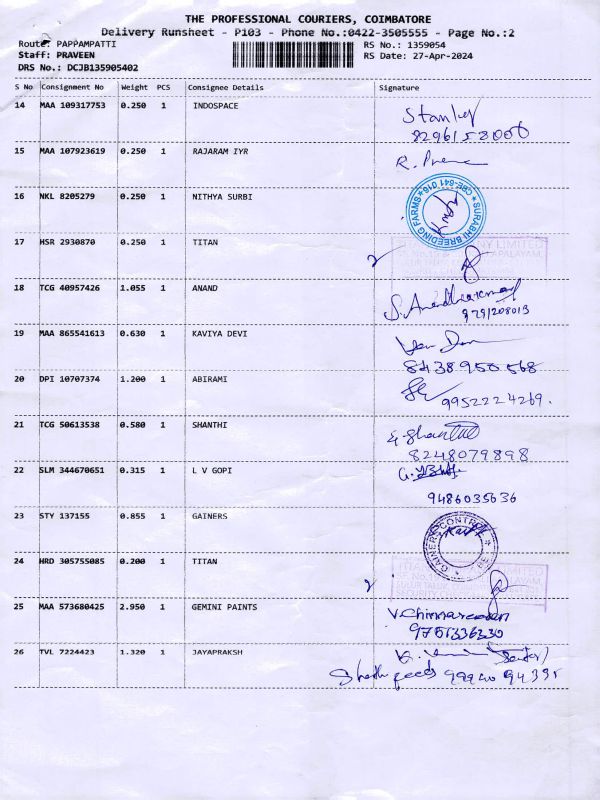 THE PROFESSIONAL COURIERS, COIMBATORE
Delivery Runsheet - P103 - Phone No.:0422-3505555 - Page No.:2
Route: PAPPAMPATTI RS No.: 1359054
Staff: PRAVEEN RS Date: 27-Apr-2024
DRS No.: DCJB135905402
S No Consignment No Weight PCS Consignee Details Signature
14 MAA 109317753 0.250 1 INDOSPACE Stanley
15 MAA 107923619 0.250 1 RAJARAM IYR R.
16 NKL 8205279 0.250 1 NITHYA SURBI
SURABHI BREEDING FARMS CBE-641 016
17 HSR 2930870 0.250 1 TITAN
18 TCG 40957426 1.055 1 ANAND S. Anandhakumar
9791208013
19 MAA 865541613 0.630 1 KAVIYA DEVI
8438950568
20 DPI 10707374 1.200 1 ABIRAMI
9952224269.
21 TCG 50613538 0.580 1 SHANTHI Shanthi
8248079898
22 SLM 344670651 0.315 1 L V GOPI
9486035636
23 STY 137155 0.855 1 GAINERS
GAINERS CONTROL
24 HRD 305755085 0.200 1 TITAN
25 MAA 573680425 2.950 1 GEMINI PAINTS
9751336330
26 TVL 7224423 1.320 1 JAYAPRAKSH
feeds 99940 94395